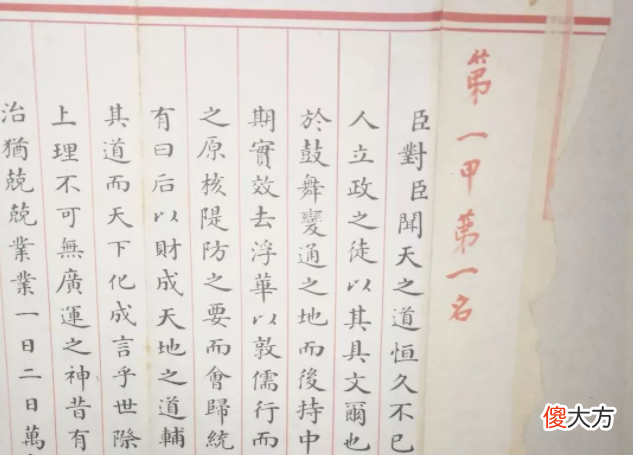 第一甲第一名
臣對臣聞天之道恒久不已
人立政之徒以其具文爾也
於鼓舞變通之地而後持中
期實效去浮華以敦儒行而
之原核隄防之要而會歸統
有曰后以財成天地之道輔
其道而天下化成言乎世際
上理不可無廣運之神昔有
治猶兢兢業業一日二日萬
傻大方